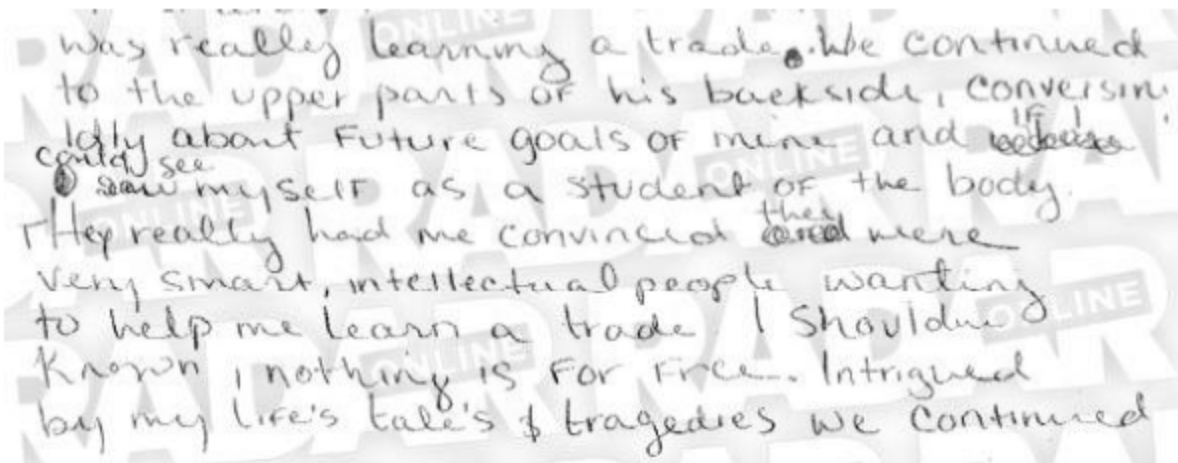 was really learning a trade. We continued
to the upper parts of his backside, conversin
idly about Future goals of mine and IF I
could see
myself as a student of the body.
They really had me convinced they were
very smart, intellectual people wanting
to help me learn a trade I Shoulduv
Known, nothing is For Free. Intrigued
by my life's tale's & tragedies we continued